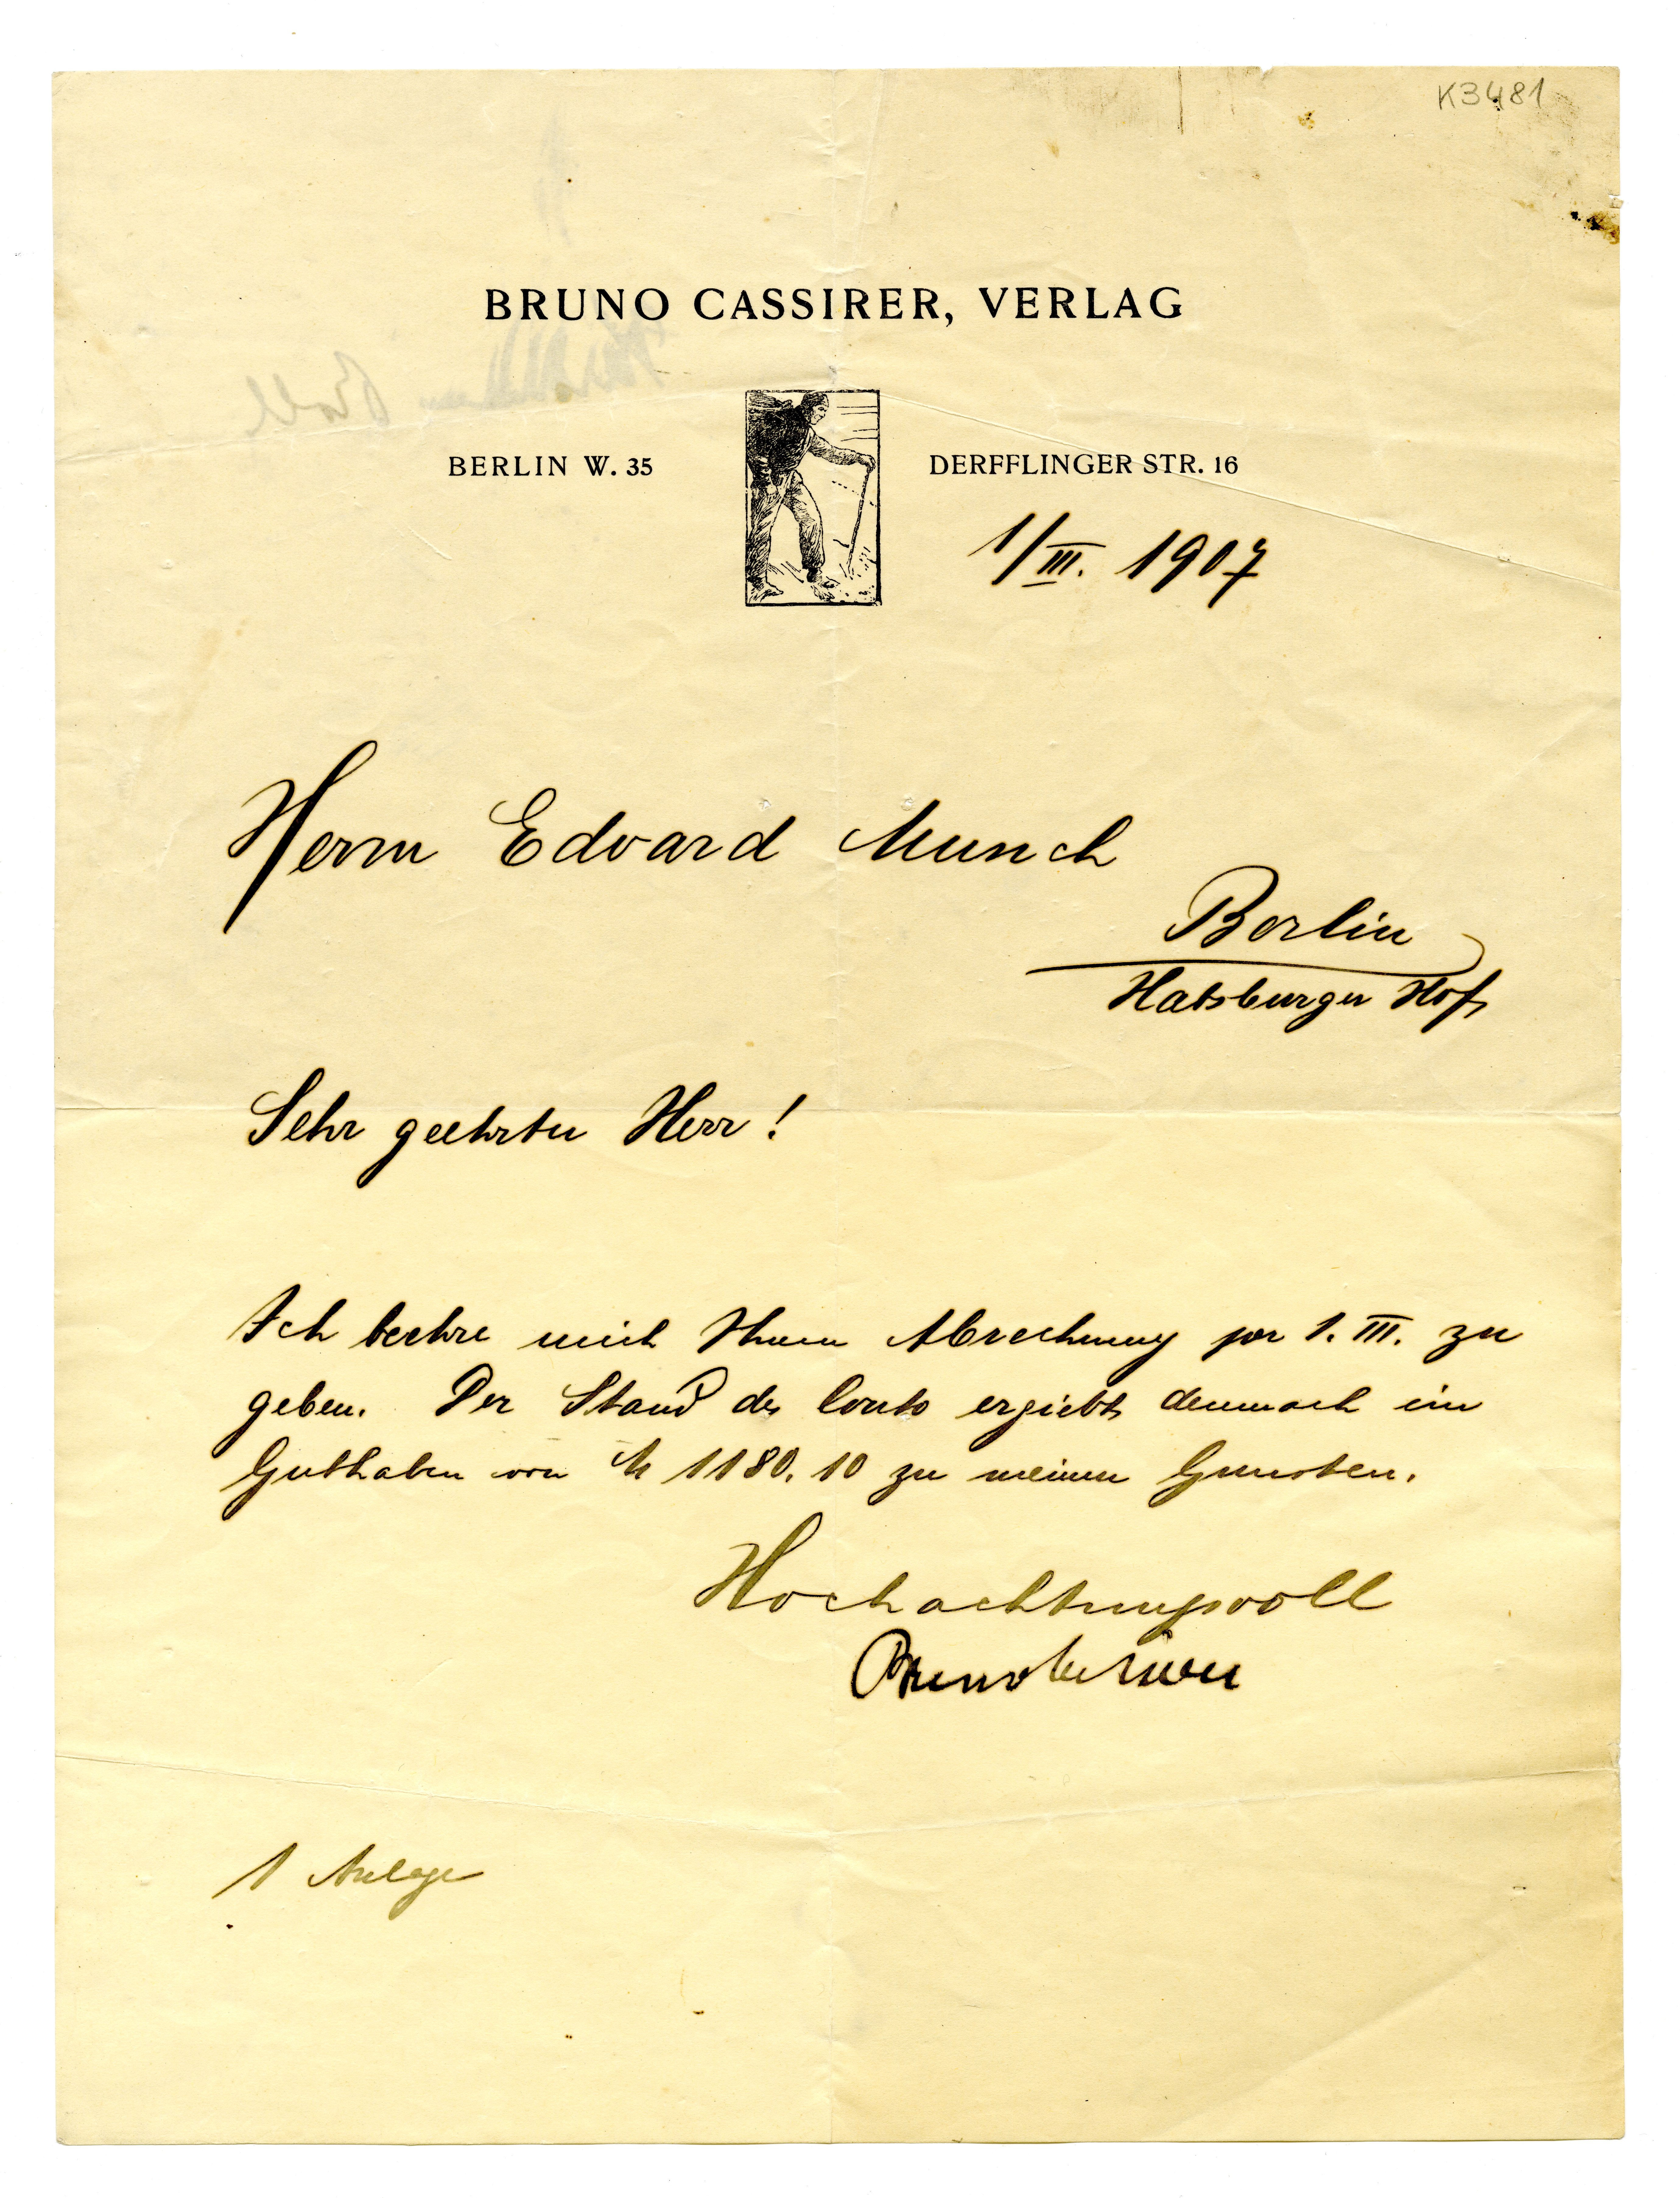 K3481
BRUNO CASSIRER, VERLAG
BERLIN W. 35
DERFFLINGER STR. 16
1/III. 1907
Herrn Edvard Munch
Berlin
Habsburger Hof
Sehr geehrter Herr!
Ich beehre mich Ihnen Abrechnung per 1. III. zu
geben. Der Stand des Conto ergiebt demnach ein
Guthaben von M 1180.10 zu meinen Gunsten.
Hochachtungsvoll
Bruno Cassirer
1 Anlage